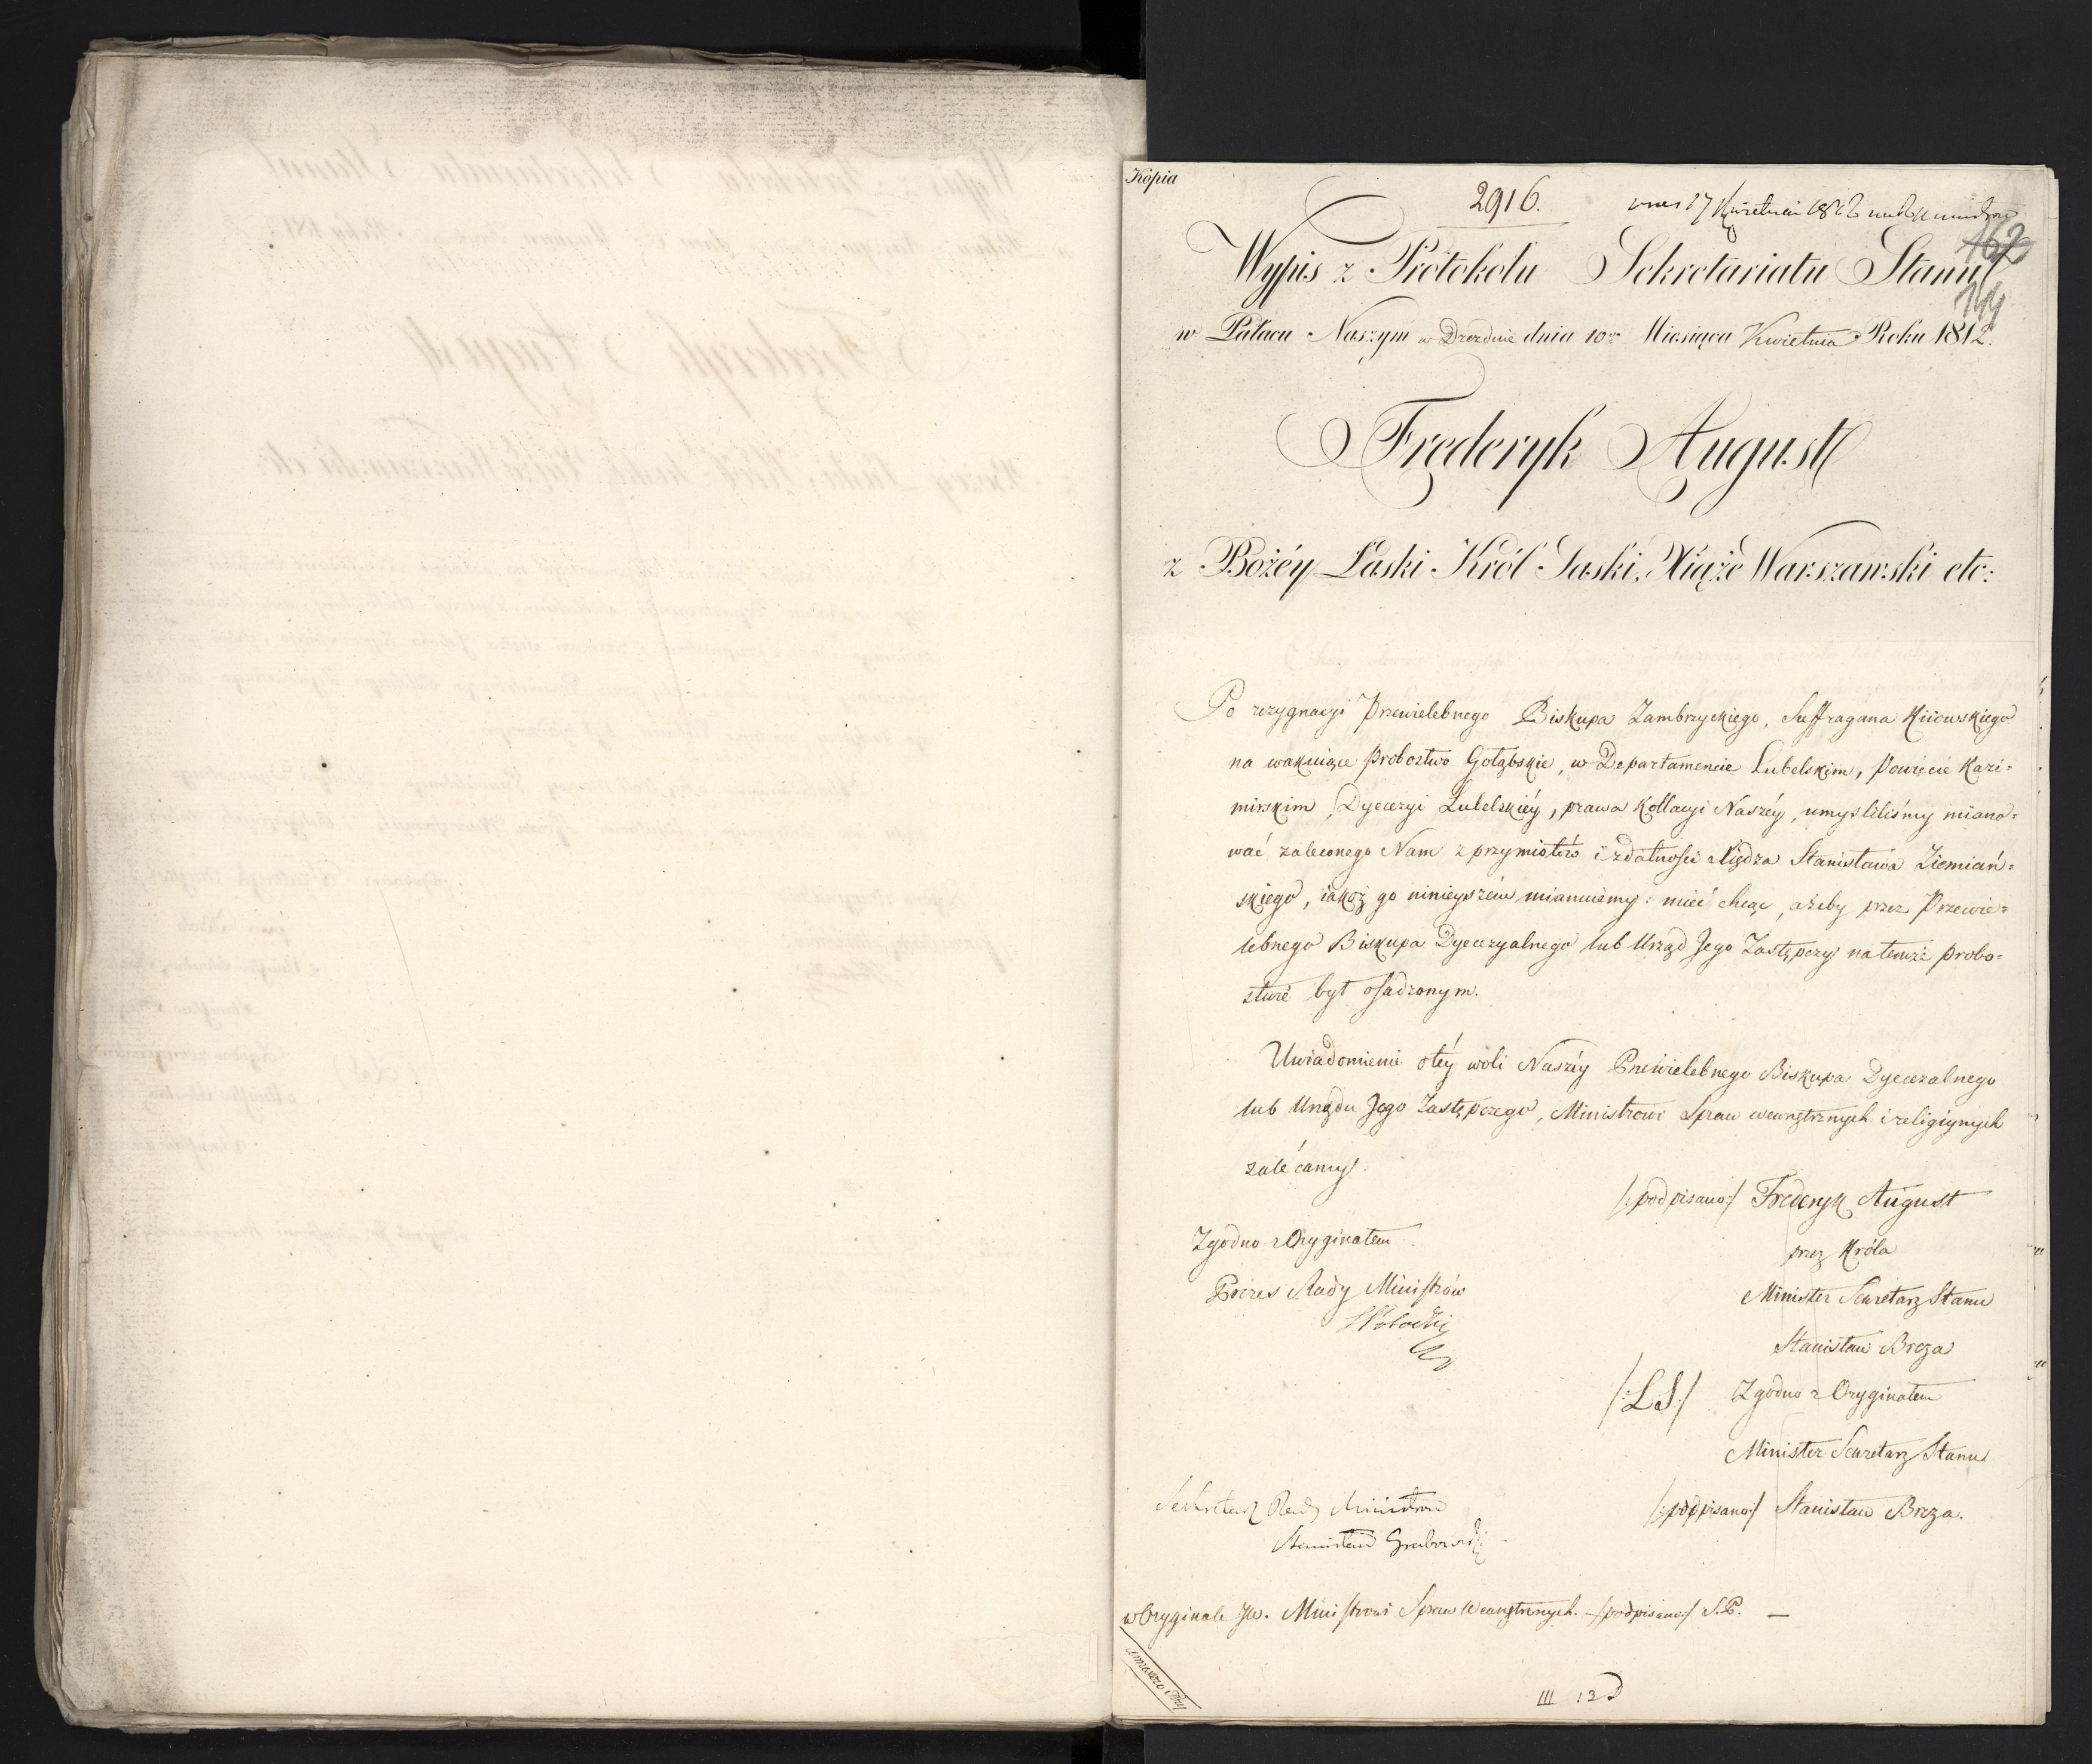 Kopia
2916.
17 Kwietnia 1812
162
144
Wypis z Protokołu Sekretariatu Stanu
w Pałacu Naszym w Dreźnie dnia 10go Miesiąca Kwietnia Roku 1812.
Frederyk August
z Bożéy Łaski Król Saski, Xiąże Warszawski etc:
Po rezygnacyi Przewielebnego Biskupa Zambrzyckiego, Suffragana Kiiowskiego
na wakuiące Probostwo Gołąbskie, w Departamencie Lubelskim, Powiecie Kazi-
mirskim, Dyecezyi Lubelskiéy, prawa Kollacyi Naszéy, umyśliliśmy miano-
wać zaleconego Nam z przymiotów i zdatności Xiędza Stanisława Ziemiań-
skiego, iakoż go ninieyszém mianuiemy: mieć chcąc, ażeby przez Przewie-
lebnego Biskupa Dyecezyalnego lub Urząd Jego Zastępczy na temże probo-
stwie był osadzonym.
Uwiadomienie o téy woli Naszéy Przewielebnego Biskupa Dyecezalnego
lub Urzędu Jego Zastępczego, Ministrowi Spraw wewnętrznych i religiynych
zalécamy.
/:podpisano:/ Frederyk August
Zgodno z Oryginałem
przez Króla
Prezes Rady Ministrów
Minister Sekretarz Stanu
Stanisław Breza
/:LS:/ Zgodno z Oryginałem
Minister Sekretarz Stanu
Sekretarz Rady Ministrów
/:podpisano:/ Stanisław Breza.
Stanisław Grabowski
w Oryginale JW. Ministrowi Spraw Wewnętrznych. /:podpisano:/ S.B. —
III 12 D